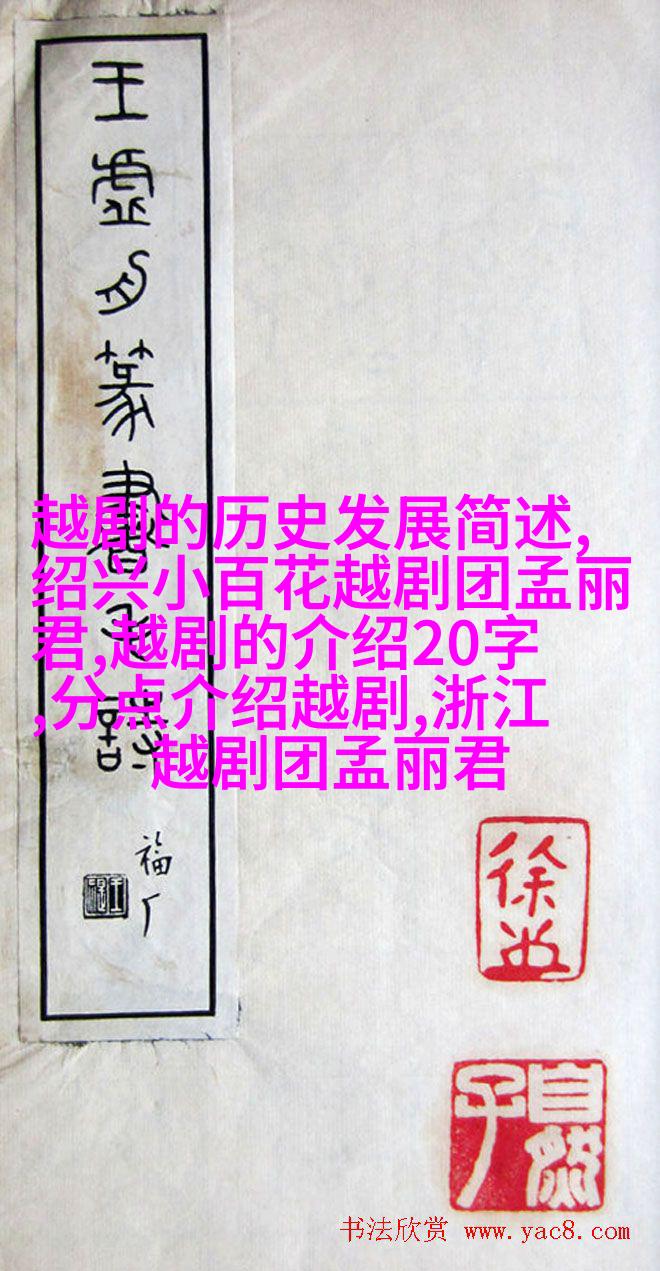 王虚舟篆书千字
福厂
越剧的历史发展简述,
绍兴小百花越剧团孟丽
君,越剧的介绍20字
,分点介绍越剧,浙江
越剧团孟丽君
自然
书法欣赏 www.yac8.com